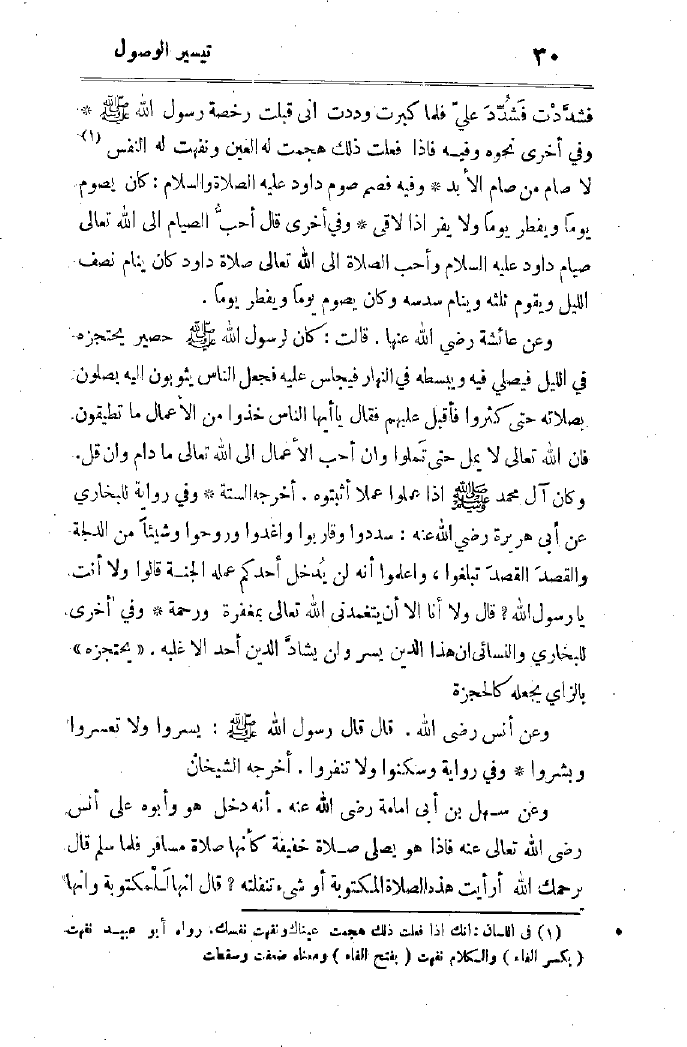 ٣٠ تيسير الوصول
فشدَّدْت فَشُدِّدَ عليّ فلما كبرت وددت انى قبلت رخصة رسول الله ﷺ *
وفي أخرى نحوه وفيه فاذا فعلت ذلك هجمت له العين ونفهت له النفس (١)
لا صام من صام الأبد * وفيه فصم صوم داود عليه الصلاة والسلام : كان يصوم
يوماً ويفطر يوماً ولا يفر اذا لاقى * وفي أخرى قال أحبُّ الصيام الى الله تعالى
صيام داود عليه السلام وأحب الصلاة الى الله تعالى صلاة داود كان ينام نصف
الليل ويقوم ثلثه وينام سدسه وكان يصوم يوماً ويفطر يوماً .
وعن عائشة رضي الله عنها . قالت : كان لرسول الله ﷺ حصير يحتجزه
في الليل فيصلي فيه ويبسطه في النهار فيجلس عليه فجعل الناس يثوبون اليه يصلون
بصلاته حتى كثروا فأقبل عليهم فقال ياأيها الناس خذوا من الأعمال ما تطيقون
فان الله تعالى لا يمل حتى تملوا وان أحب الأعمال الى الله تعالى ما دام وان قل.
وكان آل محمد ﷺ اذا عملوا عملا أثبتوه . أخرجه الستة * وفي رواية للبخاري
عن أبى هريرة رضي الله عنه : سددوا وقاربوا واغدوا وروحوا وشيئاً من الدلجة
والقصدَ القصدَ تبلغوا ، واعلموا أنه لن يُدخل أحدكم عمله الجنة قالوا ولا أنت
يا رسول الله ? قال ولا أنا الا أن يتغمدنى الله تعالى بمغفرة ورحمة * وفي أخرى
للبخاري والنسائى ان هذا الدين يسر وان يشادَّ الدين أحد الا غلبه . « يحتجزه »
بالزاي يجعله كالحجزة
وعن أنس رضى الله . قال قال رسول الله ﷺ : يسروا ولا تعسروا
وبشروا * وفي رواية وسكنوا ولا تنفروا . أخرجه الشيخان
وعن سهل بن أبى امامة رضى الله عنه . أنه دخل هو وأبوه على أنس
رضى الله تعالى عنه فاذا هو يصلى صلاة خفيفة كأنها صلاة مسافر فلما سلم قال
يرحمك الله أرأيت هذه الصلاة المكتوبة أو شيء تنفلته ? قال انها لَلْمكتوبة وانها
(١) فى اللسان : انك اذا فعلت ذلك هجمت عيناك ونفهت نفسك. رواه أبو عبيد نفهت
( بكسر الفاء ) والكلام نفهت ( بفتح الفاء ) ومعناه ضعفت وسقطت